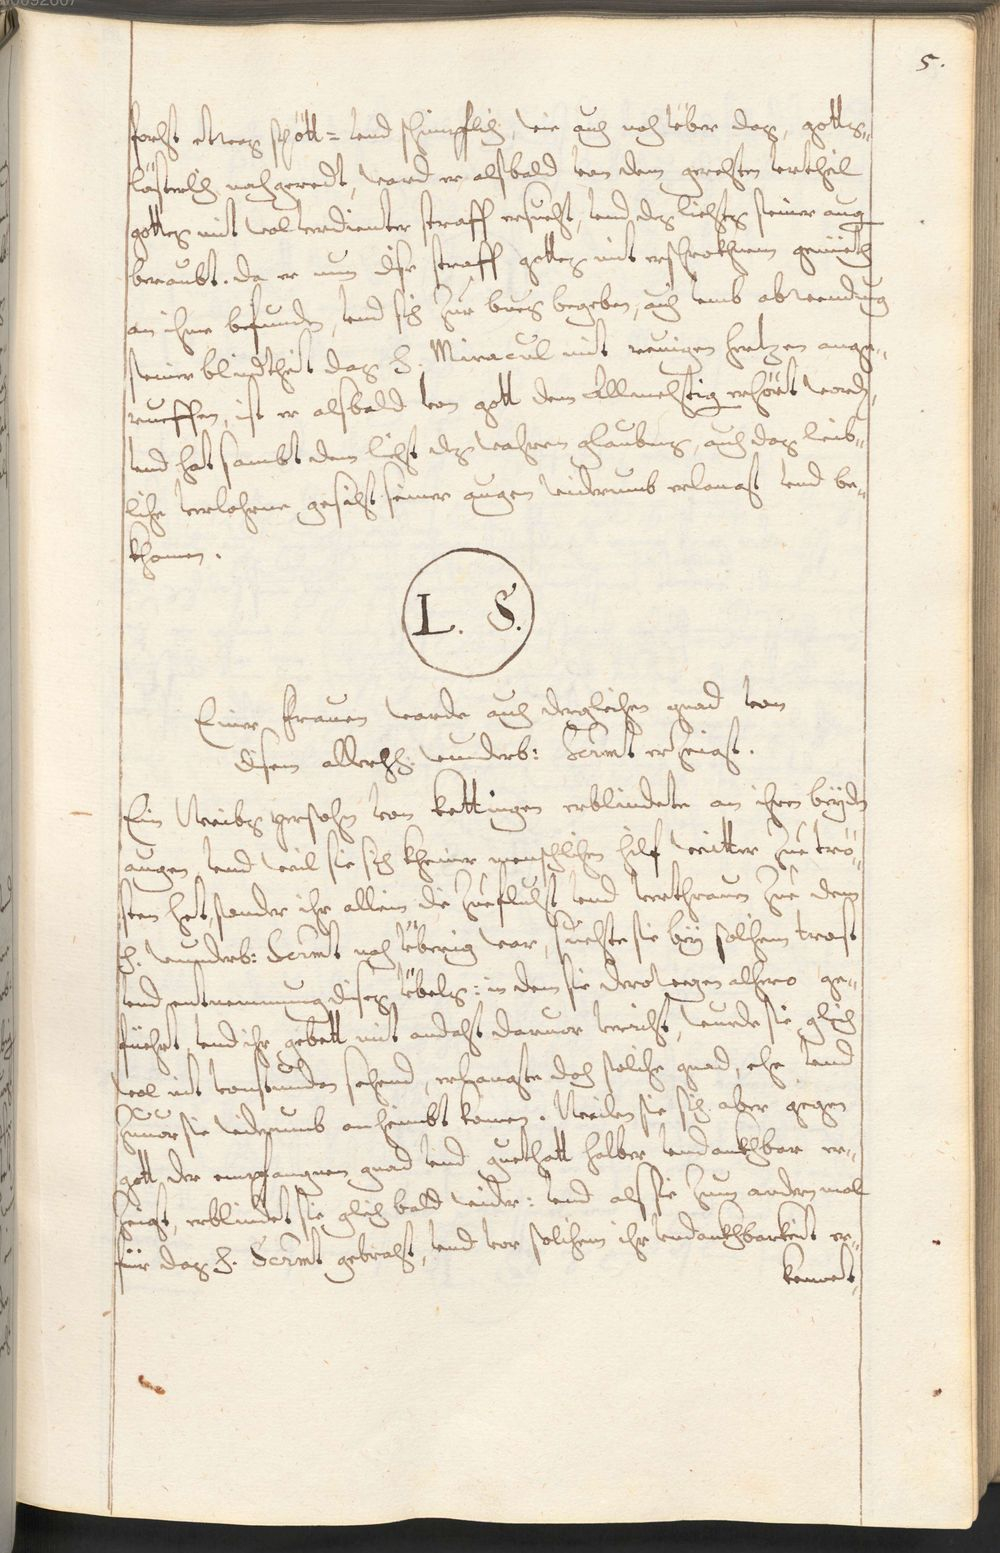 5.
forcht etwas spött= und schimpflich, wie auch noch über das, gotts„
lästerlich nachgeredt, ward er alsbald von dem gerechten urtheil
gottes mit wol verdienter straff ersucht, und des liechts seiner aug
beraubt. Da er nun dise straff gottes mit erschrokhnem gemüeth
an ihme befunden, und sich zur bues begeben, auch umb abwendung
seiner blindtheit das H: Miracul mit reuigen hertzen ange„
rueffen, ist er alsbald von gott dem Allmechtig erhört word,
und hat sambt dem liecht des wahren glaubens, auch das leib„
liche verlohrne gesicht seiner augen widerumb erlangt und be„
khomen.
L. S.
Einer frauen warde auch dergleichen gnad von
disem allerhh: wunderb: Scrmt erzeigt.
Ein Weibs persohn von Kettingen erblindete an ihren beyden
augen und weil sie sich kheiner menschlichen hilf weitter zue trö„
sten het, sonder ihr allein die zueflucht und verthrauen zue dem
h. wunderb: Scrmt noch überig war, suechte sie bey solchem trost
und entnemmung dises übels: in dem sie derowegen alhero ge„
füehrt, und ihr gebett mit andacht daruor verricht, wurde sie gleich
wol nit von stunden sehend, erlangte doch solche gnad, ehe und
zuuor sie widerumb anheimbt komen. Weilen sie sich aber gegen
gott der empfangnen gnad und guethatt halber undankhbar er„
zeigt, erblindet sie gleich bald wider: und als sie zum andern mal
für das H. Scrmt gebracht, und vor solichem ihr undankhbarkeit er„
kennet„